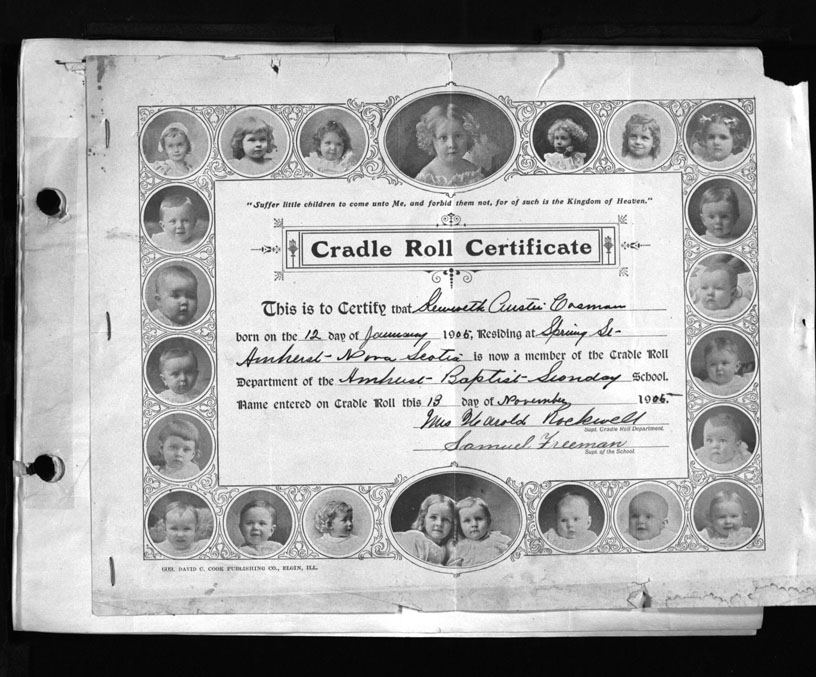 "Suffer little children to come unto Me, and forbid them not, for of such is the Kingdom of Heaven."
Cradle Roll Certificate
This is to Certify that Kenneth Austin Cosman
born on the 12 day of January 1905, Residing at Spring St-
Amherst - Nova Scotia is now a member of the Cradle Roll
Department of the Amherst - Baptist - Sunday School.
Name entered on Cradle Roll this 13 day of November 1905
Mrs Harold Rockwell
Supt. Cradle Roll Department.
Samuel Freeman
Supt. of the School.
608. DAVID C. COOK PUBLISHING CO., ELGIN, ILL.